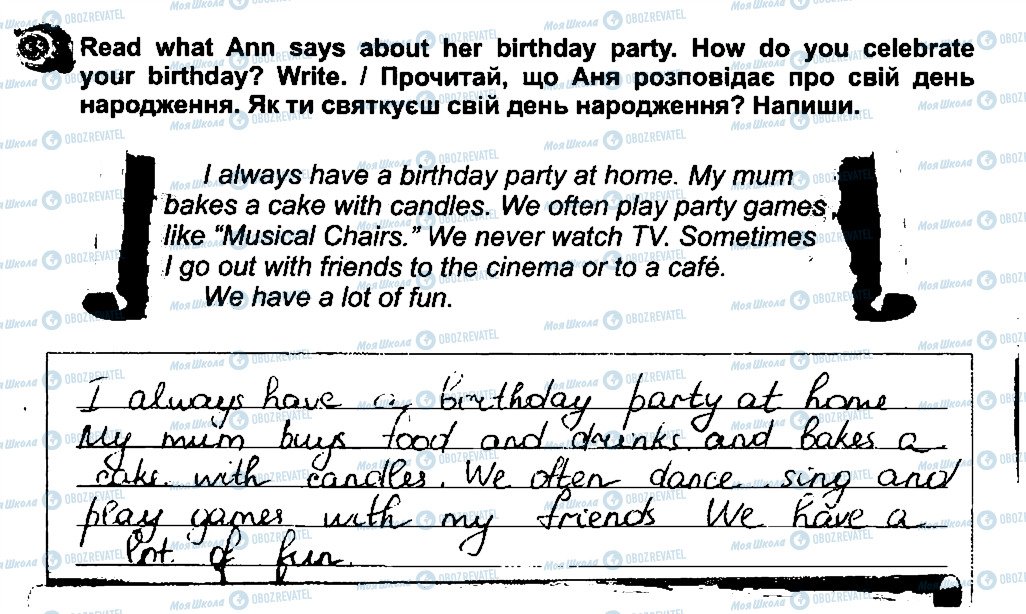 3
Read what Ann says about her birthday party. How do you celebrate
your birthday? Write. / Прочитай, що Аня розповідає про свій день
народження. Як ти святкуєш свій день народження? Напиши.
I always have a birthday party at home. My mum
bakes a cake with candles. We often play party games
like “Musical Chairs.” We never watch TV. Sometimes
I go out with friends to the cinema or to a café.
We have a lot of fun.
I always have a birthday party at home
My mum buys food and drinks and bakes a
cake with candles. We often dance sing and
play games with my friends We have a
lot of fun.
МояШкола OBOZREVATEL